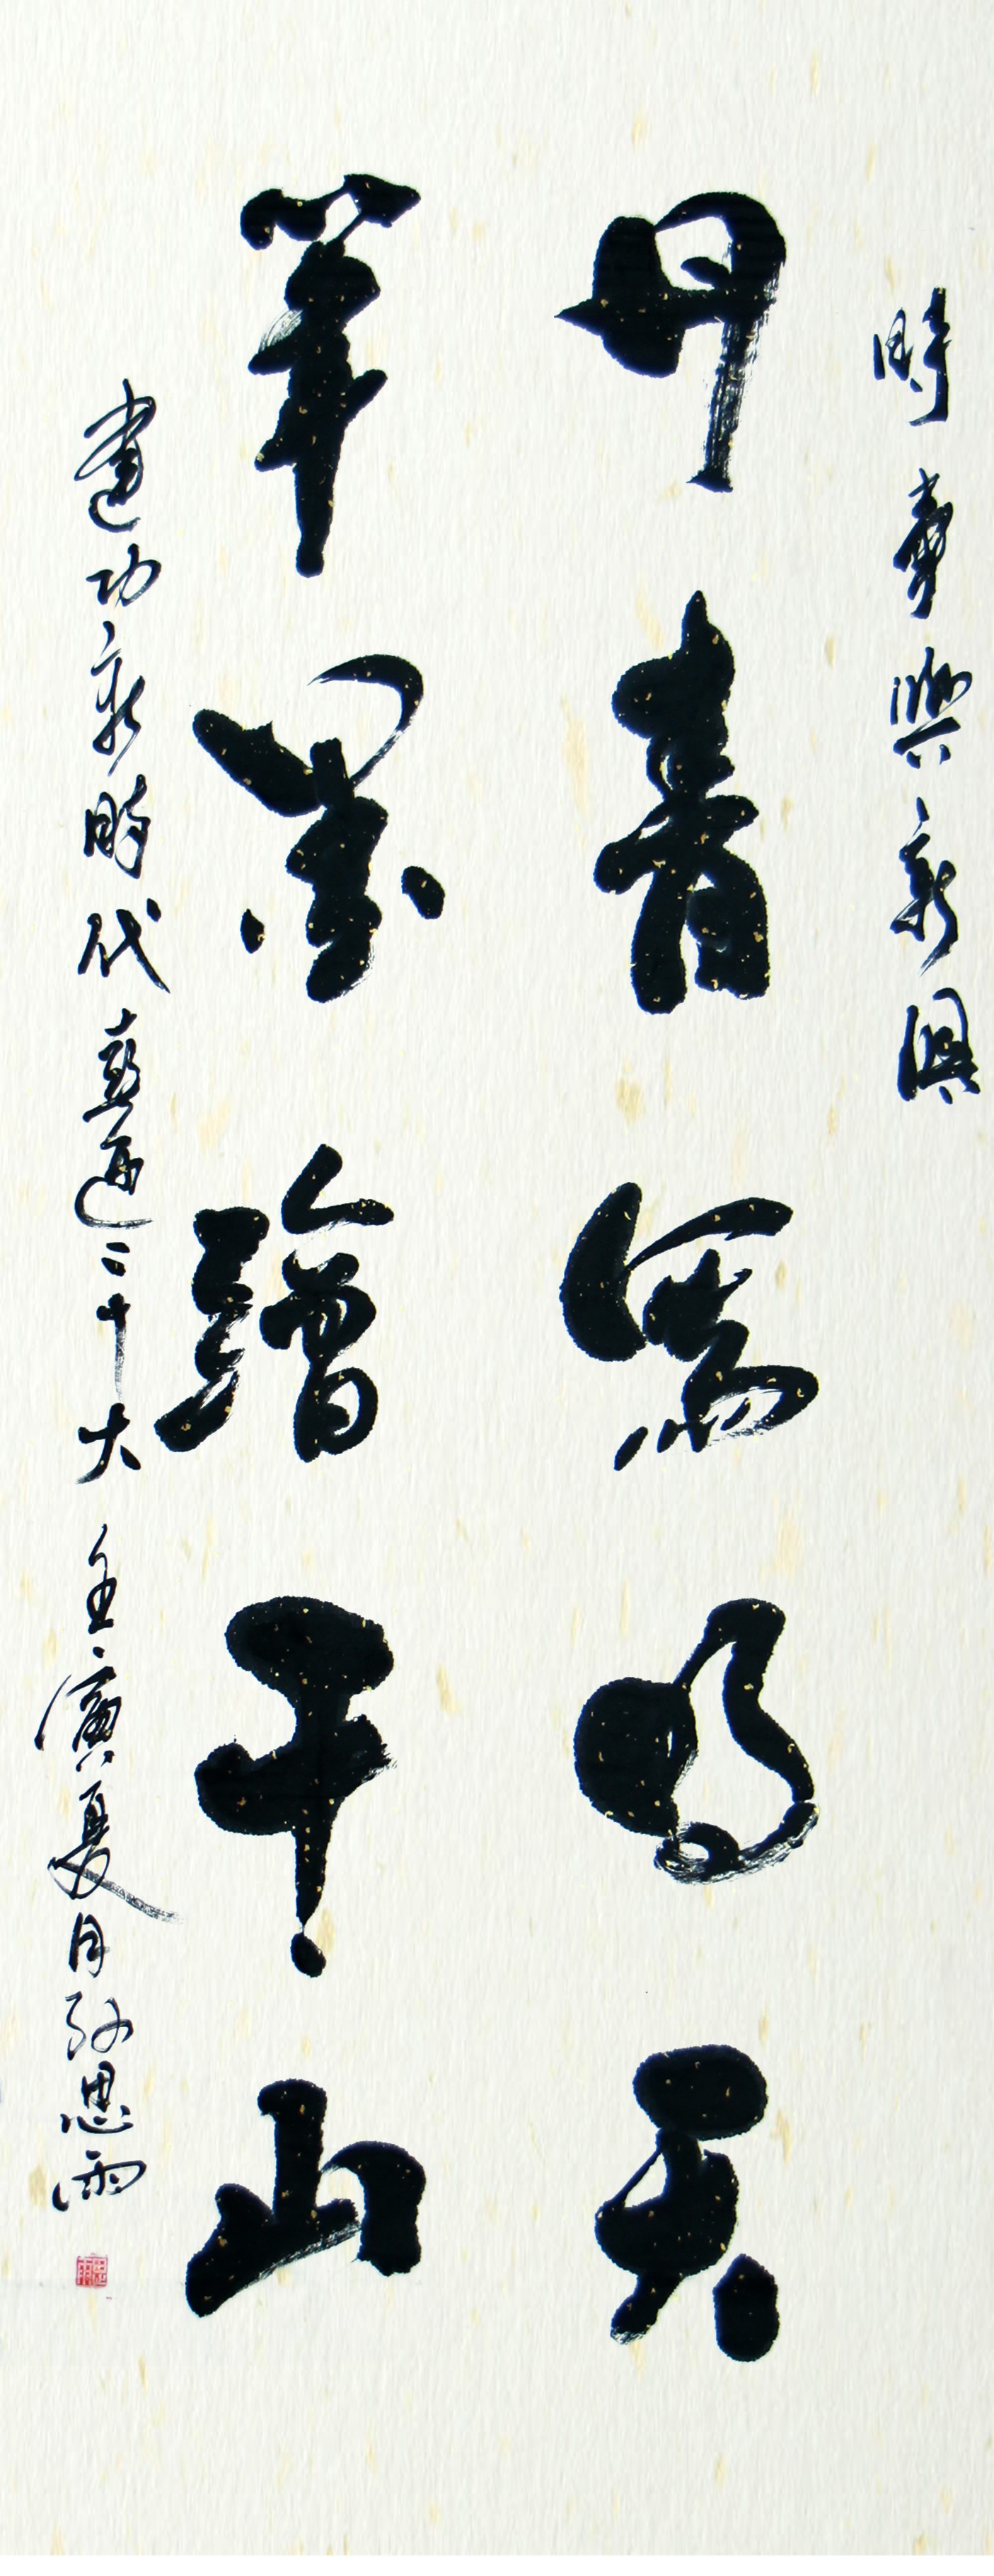 時
與新
丹青寫明天
筆墨繪千山
建功新時代喜迎二十大 壬寅夏月孫思雨